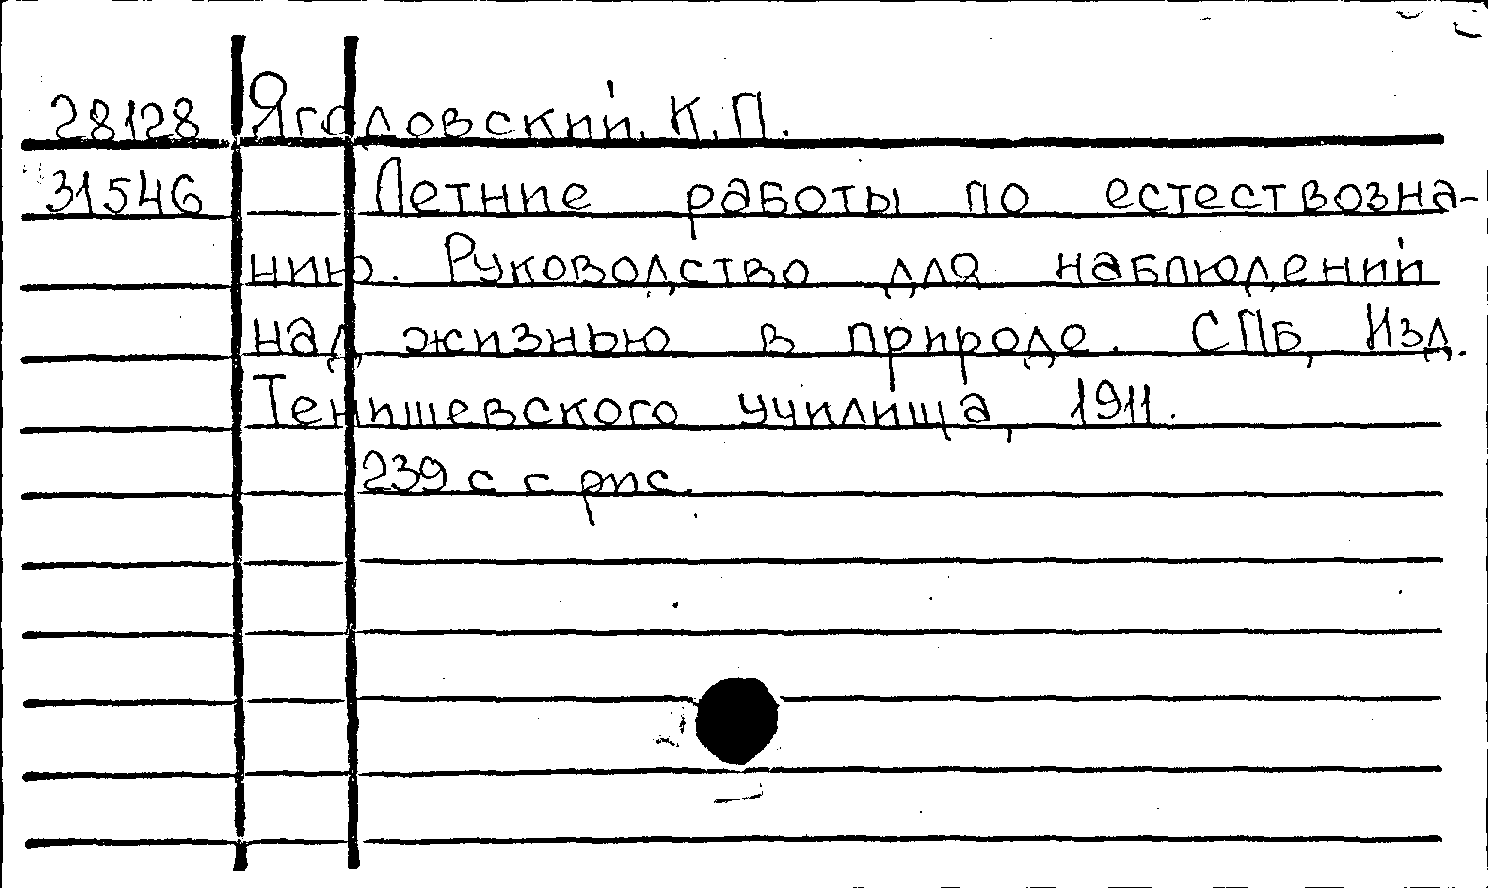 28128 Ягодовский К.П.
31546 Летние работы по естествозна-
нию. Руководство для наблюдений
над жизнью в природе. СПБ, Изд.
Тенишевского училища, 1911.
239 с с рис.